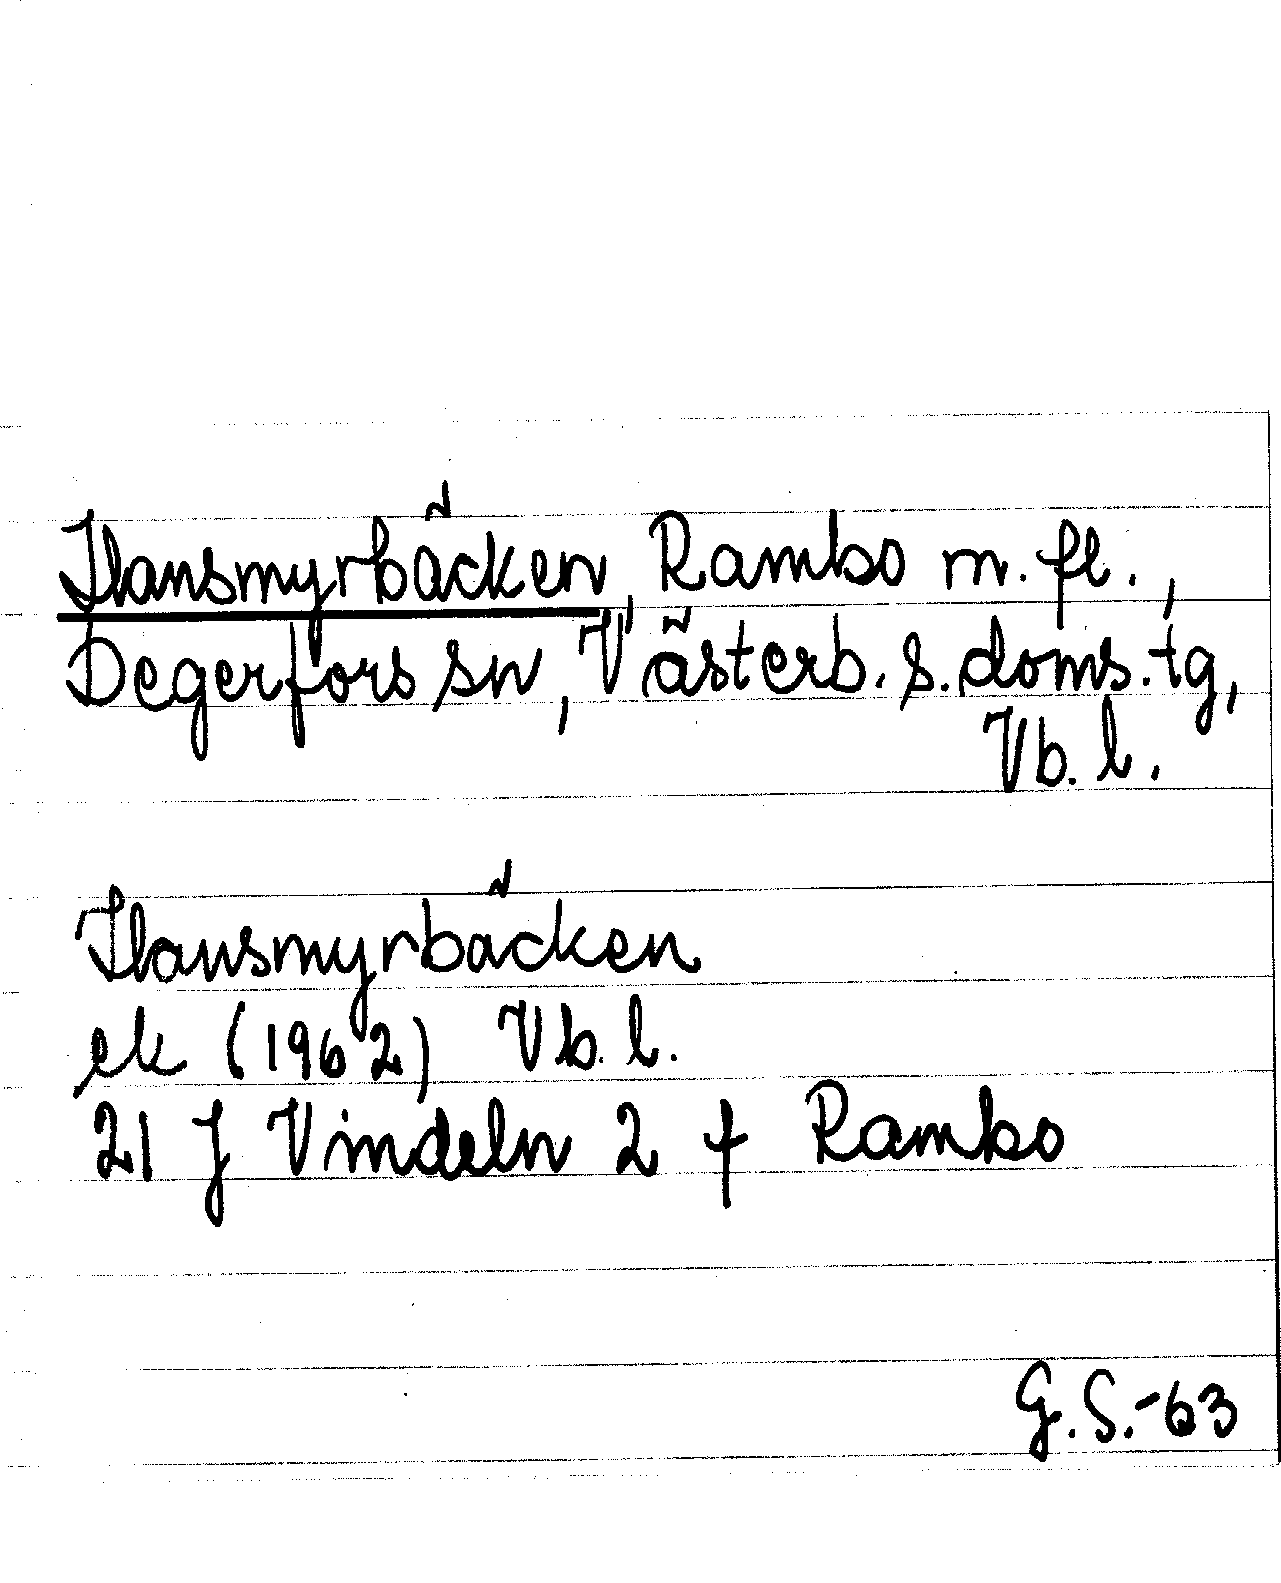 Hansmyrbäcken, Rambo m. fl.,
Degerfors sn, Västerb. s. doms. tg,
Vb. l.
Hansmyrbäcken
ek (1962) Vb. l.
21 J Vindeln 2 f Rambo
G. S. -63